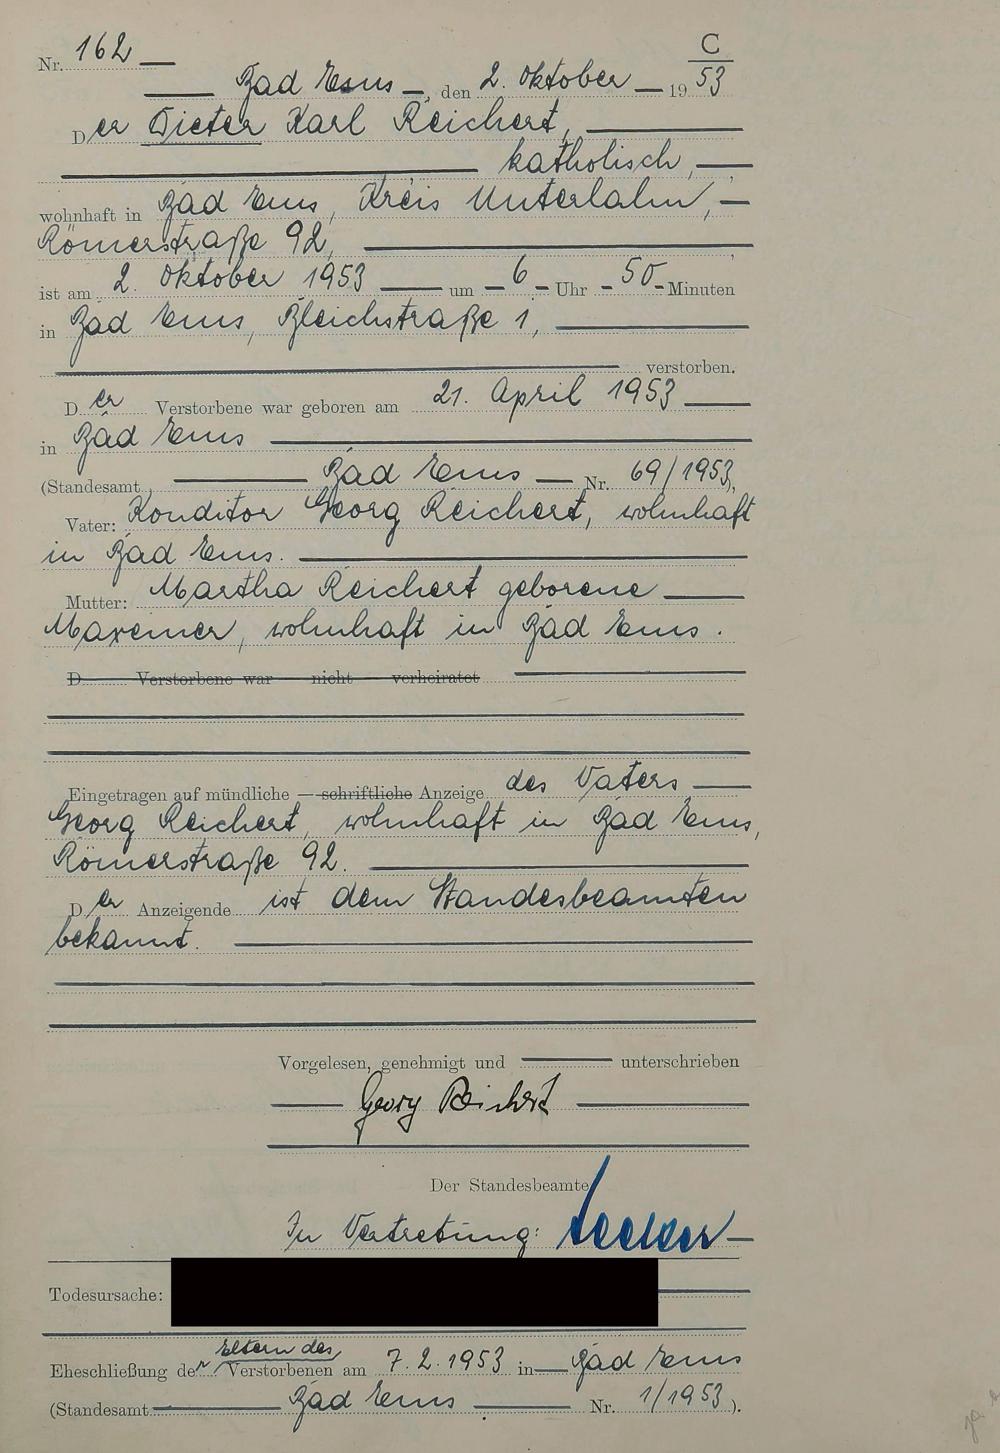 C
Nr. 162 53
Bad Ems, den 2. Oktober 19
Der Dieter Karl Reichert,
katholisch,
wohnhaft in Bad Ems, Kreis Unterlahn,
Römerstraße 92,
ist am 2. Oktober 1953 um 6 Uhr 50 Minuten
in Bad Ems, Bleichstraße 1,
verstorben.
Der Verstorbene war geboren am 21. April 1953
in Bad Ems
(Standesamt Bad Ems Nr. 69/1953),
Vater: Konditor Georg Reichert, wohnhaft
in Bad Ems.
Mutter: Martha Reichert geborene
Maxeiner, wohnhaft in Bad Ems.
D Verstorbene war nicht verheiratet
Eingetragen auf mündliche — schriftliche Anzeige des Vaters
Georg Reichert, wohnhaft in Bad Ems,
Römerstraße 92.
Der Anzeigende ist dem Standesbeamten
bekannt.
Vorgelesen, genehmigt und unterschrieben
Georg Reichert
Der Standesbeamte
In Vertretung:
Todesursache:
Eltern des
Eheschließung der Verstorbenen am 7.2.1953 in Bad Ems
(Standesamt Bad Ems Nr. 1/1953).